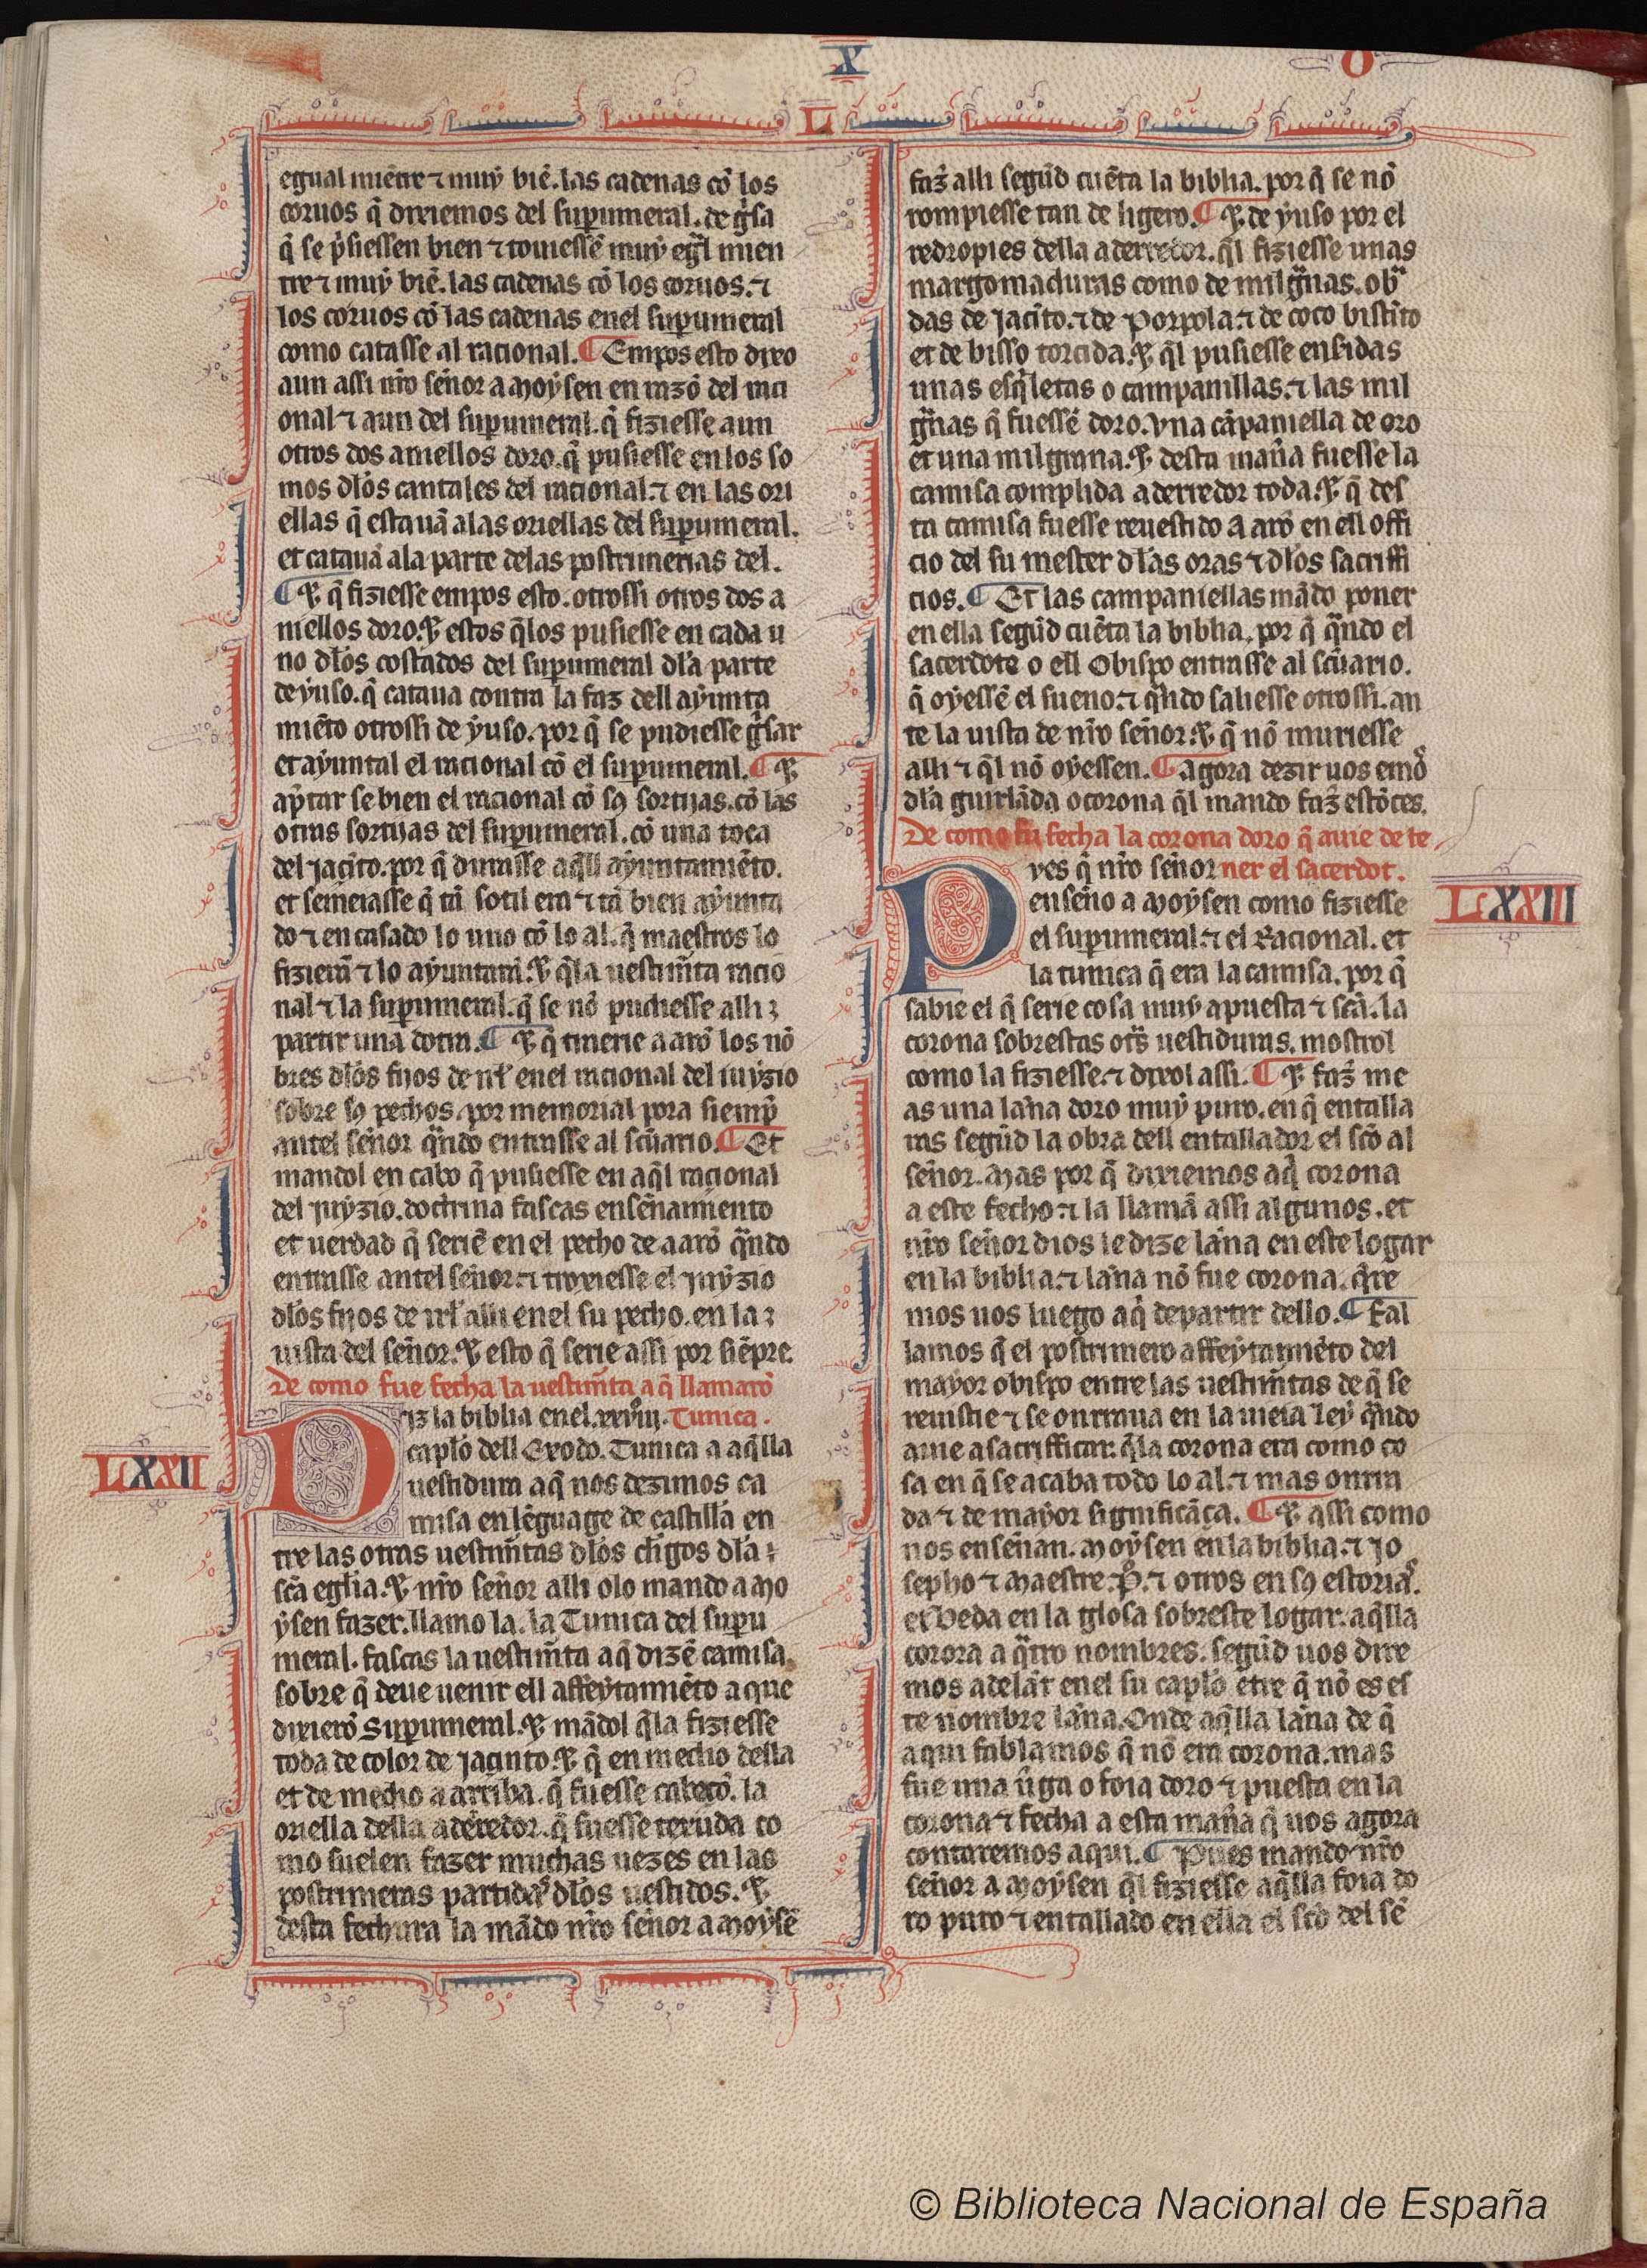 X
O
L
egual miẽtre ⁊ muy biẽ. las cadenas cõ los
coruos q̃ dixiemos del suꝑumeral. de gⁱsa
q̃ se pⁱsiessen bien ⁊ touiessẽ muy egᵃl mien
tre ⁊ muy biẽ. las cadenas cõ los coruos. ⁊
los coruos cõ las cadenas enel suꝑumeral
como catasse al racional. ¶ Empos esto dixo
aun assi nr̃o señor a moysen en razõ del raci
onal ⁊ aun del suꝑumeral. q̃ fiziesse aun
otros dos aniellos doro. q̃ pusiesse en los so
mos dl̃os cantales del racional. ⁊ en las ori
ellas q̃ estauã alas oriellas del suꝑumeral.
et catauã ala parte delas postrimerias del.
¶ ⁊ q̃ fiziesse empos esto. otrossi otros dos a
niellos doro. ⁊ estos q̃los pusiesse en cada u
no dl̃os costados del suꝑumeral dl̃a parte
de yuso. q̃ cataua contra la faz dell ayunta
miẽto otrossi de yuso. por q̃ se pudiesse gⁱsar
et ayuntal el racional cõ el suꝑumeral. ¶ ⁊
apⁱtar se bien el racional cõ sꝯ sortijas. cõ las
otras sortijas del suꝑumeral. cõ una toca
del jacĩto. por q̃ durasse aq̃ll ayuntamiẽto.
et semeiasse q̃ tã sotil era ⁊ tã bien ayunta
do ⁊ encasado lo uno cõ lo al. q̃ maestros lo
fizierã ⁊ lo ayuntarã. ⁊ q̃la uestim̃ta racio
nal ⁊ la suꝑumeral. q̃ se nõ pudiesse alli
partir una dotra. ¶ ⁊ q̃ traerie aarõ los nõ
bres dl̃os fijos de isrl̃ enel racional del iuyzio
sobre sꝯ pechos. por memorial pora siempⁱ
antel señor qᵃndo entrasse al sc̃uario. ¶ Et
mandol en cabo q̃ pusiesse en aq̃l racional
del juyzio. doctrina fascas enseñamiento
et uerdad q̃ seriẽ en el pecho de aarõ qᵃndo
entrasse antel señor. ⁊ troxiesse el juyzio
dl̃os fijos de isrl̃ alli enel su pecho. en la
uista del señor. ⁊ esto q̃ serie assi por siẽpre.
De como fue fecha la uestim̃ta a q̃ llamarõ
Tunica.
LXXII
Diz la biblia enel .xxviij.
cap̃lo dell Exodo. Tunica a aq̃lla
uestidura a q̃ nos dezimos ca
misa en lẽguage de castilla en
tre las otras uestim̃tas dl̃os cl̃igos dl̃a
sc̃a egl̃ia. ⁊ nr̃o señor alli olo mando a mo
ysen fazer. llamo la. la Tunica del suꝑu
meral. fascas la uestim̃ta a q̃ dizẽ camisa.
sobre q̃ deue uenir ell affeytamiẽto a que
dixierõ Suꝑumeral. ⁊ mãdol q̃la fiziesse
toda de color de jacinto. ⁊ q̃ en medio della
et de medio a arriba. q̃ fuesse cabeçõ. la
oriella della aderredor. q̃ fuesse texuda co
mo suelen fazer muchas uezes en las
postrimeras partidas dl̃os uestidos. ⁊
desta fechura la mãdo nr̃o señor a moysẽ
faz̃ alli segũd cuẽta la biblia. por q̃ se nõ
rompiesse tan de ligero. ¶ ⁊ de yuso por el
redropies della aderredor. q̃l fiziesse unas
margomaduras como de milgᵃnas. obᵃ
das de jacĩto. ⁊ de porpola. ⁊ de coco bistĩto
et de bisso torcida. ⁊ q̃l pusiesse enfidas
unas esq̃letas o campanillas. ⁊ las mil
gᵃnas q̃ fuessẽ doro. una cãpaniella de oro
et una milgrana. ⁊ desta mañã fuesse la
camisa complida aderredor toda. ⁊ q̃ des
ta camisa fuesse reuestido a arõ en ell offi
cio del su mester dl̃as oras ⁊ dl̃os sacriffi
cios. ¶ Et las campaniellas mãdo poner
en ella segũd cuẽta la biblia. por q̃ qᵃndo el
sacerdote o ell Obispo entrasse al sc̃uario.
q̃ oyessẽ el sueno. ⁊ qᵃndo saliesse otrossi. an
te la uista de nr̃o señor. ⁊ q̃ nõ muriesse
alli ⁊ q̃l nõ oyessen. ¶ agora dezir uos emoˢ
dl̃a guirlãda o corona q̃l mando faz̃ estõces.
De como fu fecha la corona doro q̃ auie de te
ner el sacerdot.
LXXIII
Pves q̃ nr̃o señor
enseño a moysen como fiziesse
el suꝑumeral. ⁊ el Racional. et
la tunica q̃ era la camisa. por q̃
sabie el q̃ serie cosa muy apuesta ⁊ sc̃a. la
corona sobrestas otr̃s uestiduras. mostrol
como la fiziesse. ⁊ dixol assi. ¶ ⁊ faz̃ me
as una lañã doro muy puro. en q̃ entalla
ras segũd la obra dell entallador el sc̃o al
señor. Mas por q̃ dixiemos aqⁱ corona
a este fecho. ⁊ la llamã assi algunos. et
nr̃o señor dios le dize lañã en este logar
en la biblia. ⁊ lañã nõ fue corona. q̃re
mos uos luego aqⁱ departir dello. ¶ Fal
lamos q̃ el postrimero affeytamiẽto del
mayor obispo entre las uestim̃tas de q̃ se
reuistie ⁊ se onrraua en la uieia ley qᵃndo
auie a sacrifficar. q̃la corona era como co
sa en q̃ se acaba todo lo al. ⁊ mas onrra
da ⁊ de mayor significãça. ¶ ⁊ assi como
nos enseñan. Moysen en la biblia. ⁊ jo
sepho ⁊ Maestre .P̃. ⁊ otros en sꝯ estoriaˢ.
et Beda en la glosa sobreste logar. aq̃lla
corora a qᵃtro nombres. segũd uos dire
mos adelãt enel su cap̃lo ẽtre q̃ nõ es es
te nombre lañã. Onde aq̃lla lañã de q̃
aqui fablamos q̃ nõ era corona. mas
fue una ũga o foia doro ⁊ puesta en la
corona ⁊ fecha a esta mañã q̃ uos agora
contaremos aqui. ¶ Pues mando nr̃o
señor a moysen q̃l fiziesse aq̃lla foia do
ro puro ⁊ entallado en ella el sc̃o del sẽ
© Biblioteca Nacional de España